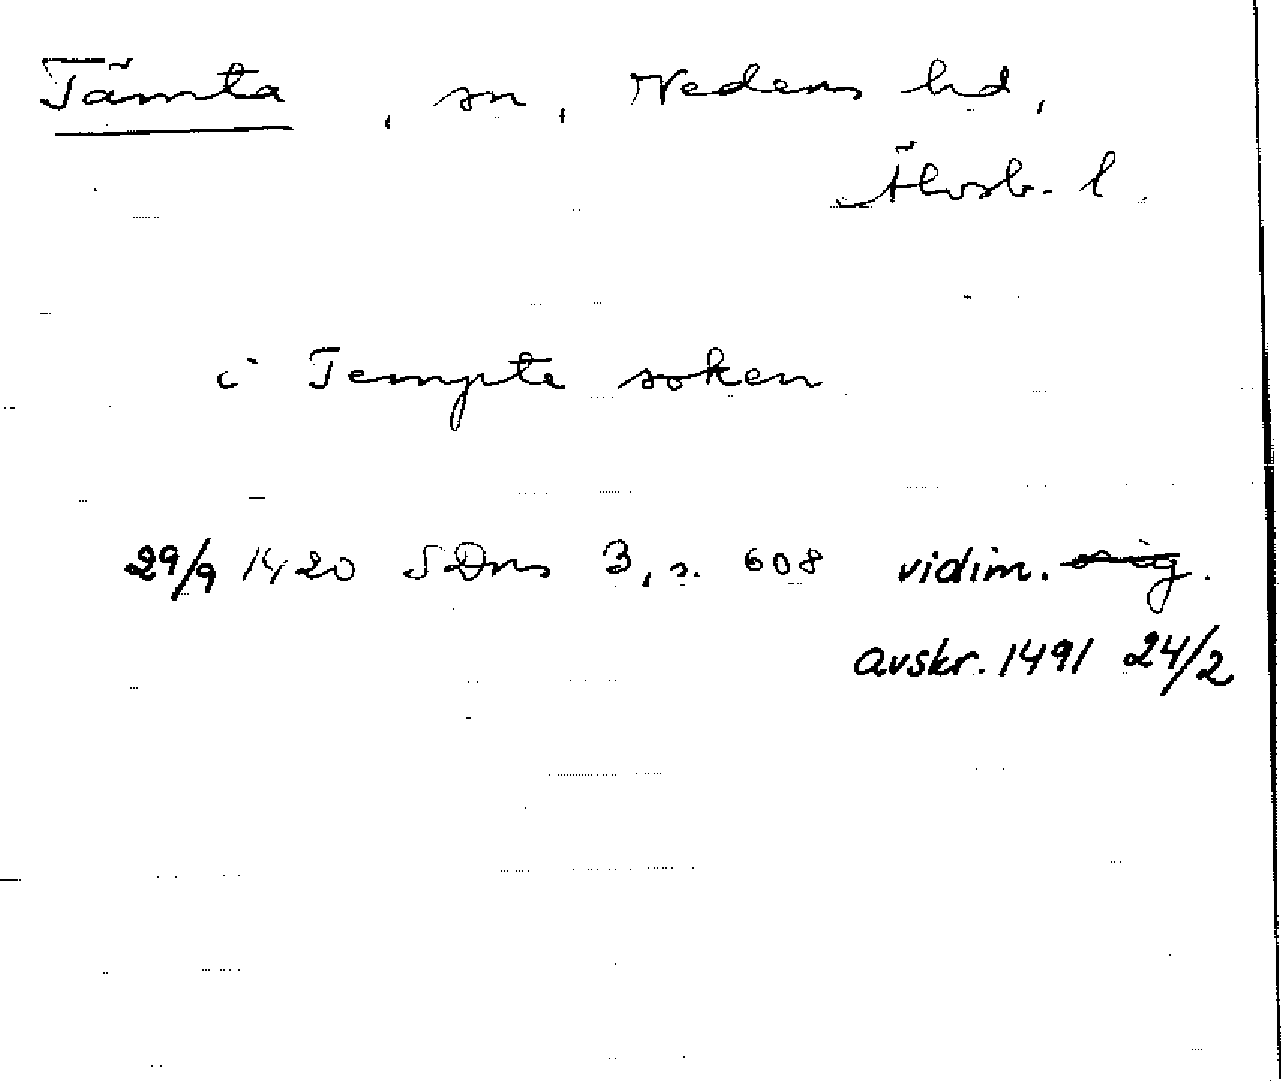 Tämta, sn, Vedens hd,
Älvsb. l.
i Tempte soken
29/9 1420 SDns 3, s. 608 vidim. orig.
avskr. 1491 24/2